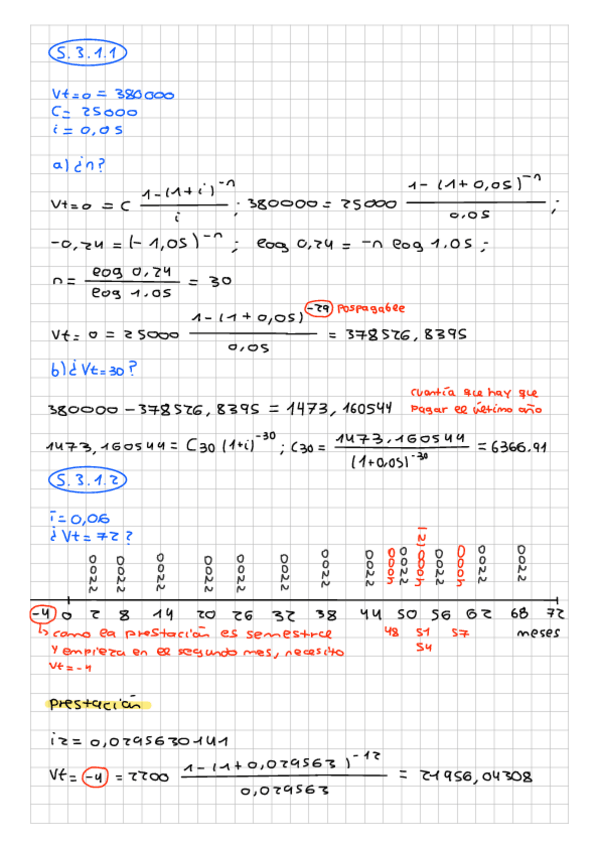 5.3.1.1
Vt=0 = 380000
C = 25000
i = 0,05
a) ¿n?
Vt=0 = C (1-(1+i)^-n)/i ; 380000 = 25000 (1-(1+0,05)^-n)/0,05 ;
-0,24 = (-1,05)^-n ; log 0,24 = -n log 1.05 ;
n = log 0,24 / log 1.05 = 30
Vt = 0 = 25000 (1-(1+0,05)^-29)/0,05 = 378526,8395
pospagable
b) ¿Vt=30?
380000 - 378526,8395 = 1473,160544
cuantía que hay que
pagar el último año
1473,160544 = C30 (1+i)^-30 ; C30 = 1473.160544/(1+0.05)^-30 = 6366.91
5.3.1.2
i = 0,06
¿Vt = 72?
2200 2200 2200 2200 2200 2200 2200 2200 5000 2200 5000 (2) 2200 5000 2200 2200
-4 0 2 8 14 20 26 32 38 44 50 56 62 68 72
↳ como la prestación es semestral 48 51 57 meses
y empieza en el segundo mes, necesito 54
Vt=-4
prestación
i2 = 0,0295630141
Vt = -4 = 2200 (1-(1+0,029563)^-12)/0,029563 = 21956,04308